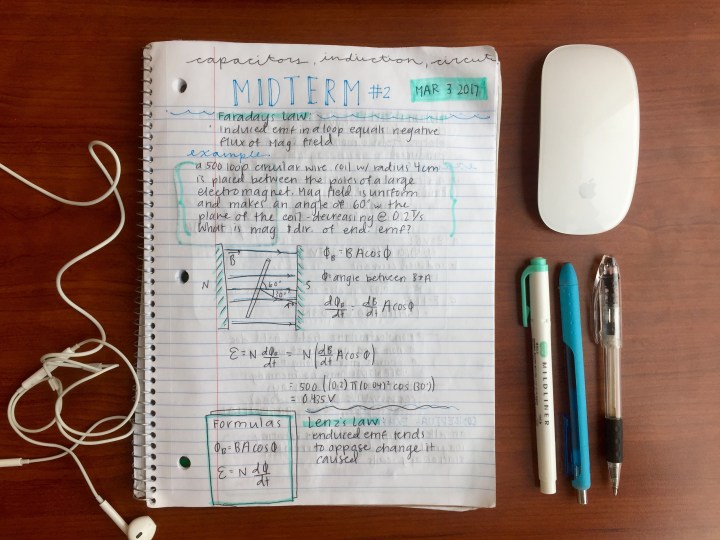 capacitors, induction, circuit
MIDTERM #2
MAR 3 2017
Faradays Law:
· induced emf in a loop equals negative
flux of mag field
example:
a 500 loop circular wire coil w/ radius 4cm
is placed between the poles of a large
electromagnet. Mag field is uniform
and makes an angle of 60° w the
plane of the coil - decreasing @ 0.2 T/s
What is mag & dir. of end emf?
B
N
60°
30°
S
Φ_B = BA cos ϕ
ϕ angle between B & A
dΦ_B/dt = dB/dt A cos ϕ
ℰ = N dΦ_B/dt = N (dB/dt A cos ϕ)
= 500 ((0.2) π (0.04)² cos (30°))
= 0.435 V
Formulas
Φ_B = BA cos ϕ
ℰ = N dΦ/dt
Lenz's Law
enduced emf tends
to oppose change it
caused
MILDLINER